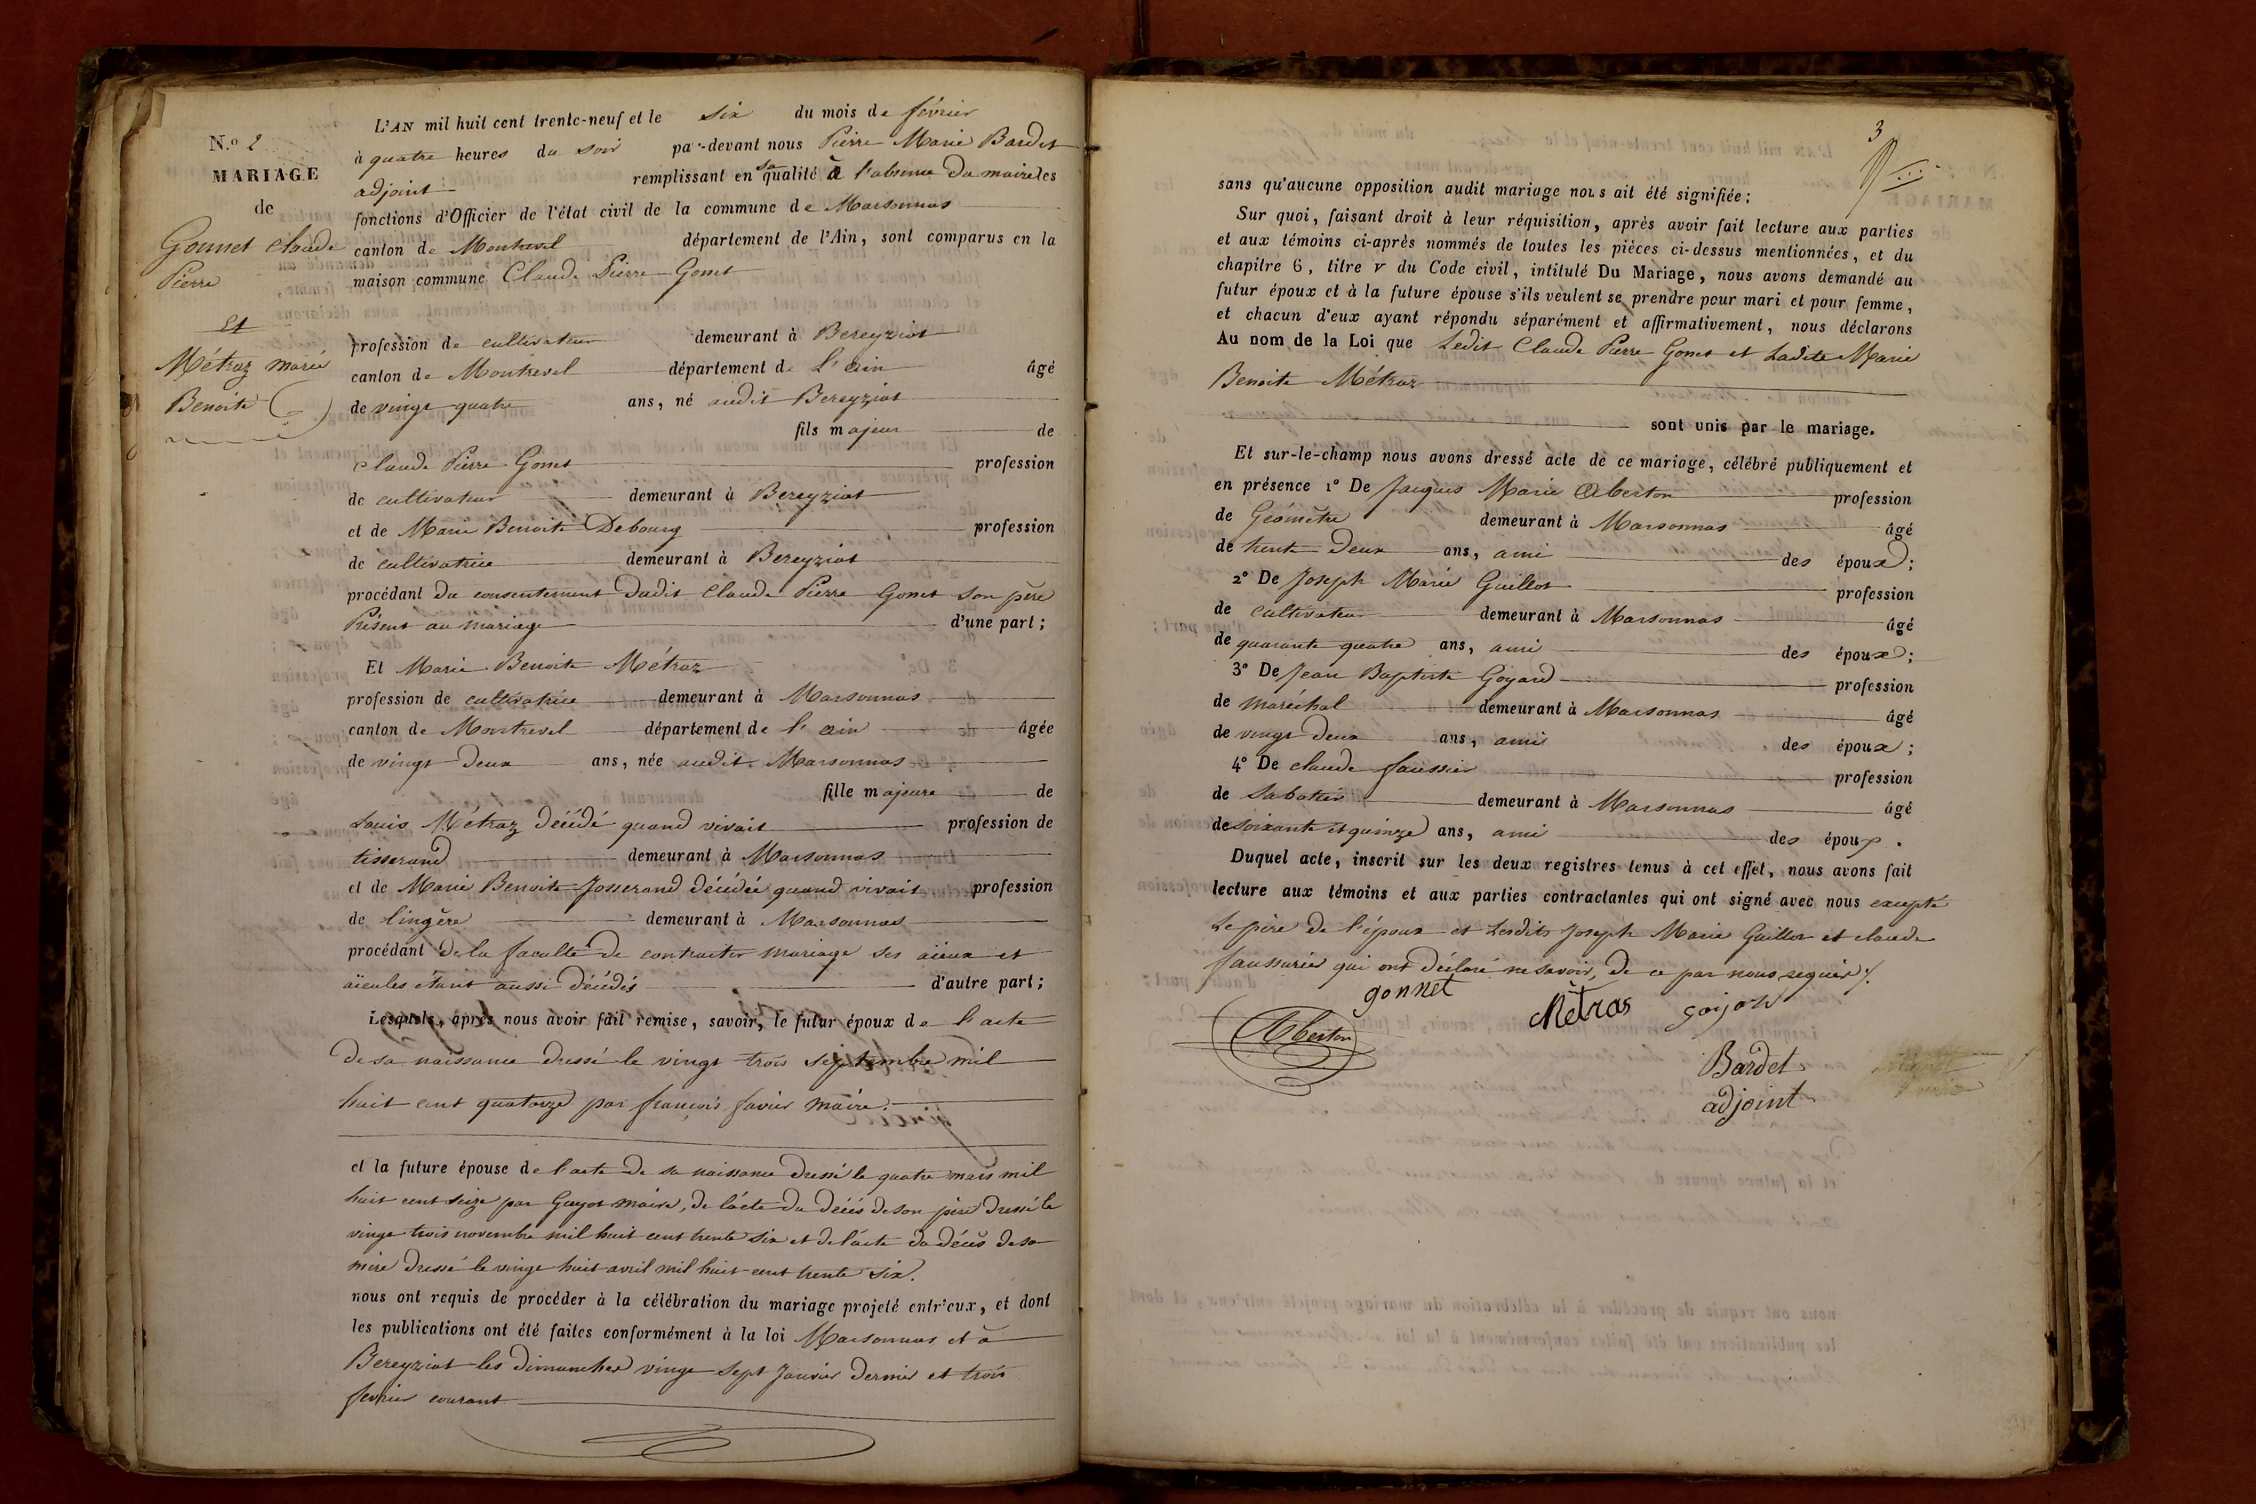 N.o 2
MARIAGE
de
Gonnet claude
Pierre
Et
Métraz marie
Benoite
L'AN mil huit cent trente-neuf et le six du mois de février
à quatre heures du soir par-devant nous Pierre Marie Bardet
adjoint remplissant en sa qualité à l'absence du maire les
fonctions d'Officier de l'état civil de la commune de Marsonnas
canton de Montrevel département de l'Ain, sont comparus en la
maison commune Claude Pierre Gonet
profession de cultivateur demeurant à Bereyziat
canton de Montrevel département de l'ain âgé
de vingt quatre ans, né audit Bereyziat
fils majeur de
claude Pierre Gonet profession
de cultivateur demeurant à Bereyziat
et de Marie Benoite Debourg profession
de cultivatrice demeurant à Bereyziat
procédant du consentement dudit Claude Pierre Gonet son père
Présent au mariage d'une part;
Et Marie Benoite Métraz
profession de cultivatrice demeurant à Marsonnas
canton de Montrevel département de l'ain âgée
de vingt deux ans, née audit Marsonnas
fille majeure de
Louis Métraz décédé quand vivait profession de
tisserand demeurant à Marsonnas
et de Marie Benoite Josserand décédée quand vivait profession
de lingère demeurant à Marsonnas
procédant de la faculté de contracter mariage ses aïeux et
aïeules étant aussi décédés d'autre part;
Lesquels, après nous avoir fait remise, savoir, le futur époux de l'acte
de sa naissance dressé le vingt trois septembre mil
huit cent quatorze par françois favier maire.
et la future épouse de l'acte de sa naissance dressé le quatre mars mil
huit cent seize par Guyot maire, de l'acte du décès de son père dressé le
vingt trois novembre mil huit cent trente six et de l'acte du décès de sa
mère dressé le vingt huit avril mil huit cent trente six.
nous ont requis de procéder à la célébration du mariage projeté entr'eux, et dont
les publications ont été faites conformément à la loi Marsonnas et à
Bereyziat les dimanches vingt sept Janvier dernier et trois
fevrier courant
3
sans qu'aucune opposition audit mariage nous ait été signifiée;
Sur quoi, faisant droit à leur réquisition, après avoir fait lecture aux parties
et aux témoins ci-après nommés de toutes les pièces ci-dessus mentionnées, et du
chapitre 6, titre v du Code civil, intitulé Du Mariage, nous avons demandé au
futur époux et à la future épouse s'ils veulent se prendre pour mari et pour femme,
et chacun d'eux ayant répondu séparément et affirmativement, nous déclarons
Au nom de la Loi que Ledit Claude Pierre Gonet et Ladite Marie
Benoite Métraz
sont unis par le mariage.
Et sur-le-champ nous avons dressé acte de ce mariage, célébré publiquement et
en présence 1° De Jacques Marie Oberton profession
de Géomètre demeurant à Marsonnas âgé
de trente deux ans, ami des époux;
2° De Joseph Marie Guillot profession
de cultivateur demeurant à Marsonnas âgé
de quarante quatre ans, ami des époux;
3° De Jean Baptiste Goyard profession
de maréchal demeurant à Marsonnas âgé
de vingt deux ans, ami des époux;
4° De claude profession
de Sabotier demeurant à Marsonnas âgé
de soixante et quinze ans, ami des époux.
Duquel acte, inscrit sur les deux registres tenus à cet effet, nous avons fait
lecture aux témoins et aux parties contractantes qui ont signé avec nous excepté
Le père de l'époux et Lesdits Joseph Marie Guillot et claude
qui ont déclaré ne savoir, de ce par nous requis
gonnet
Oberton
Métras
Bardet
adjoint